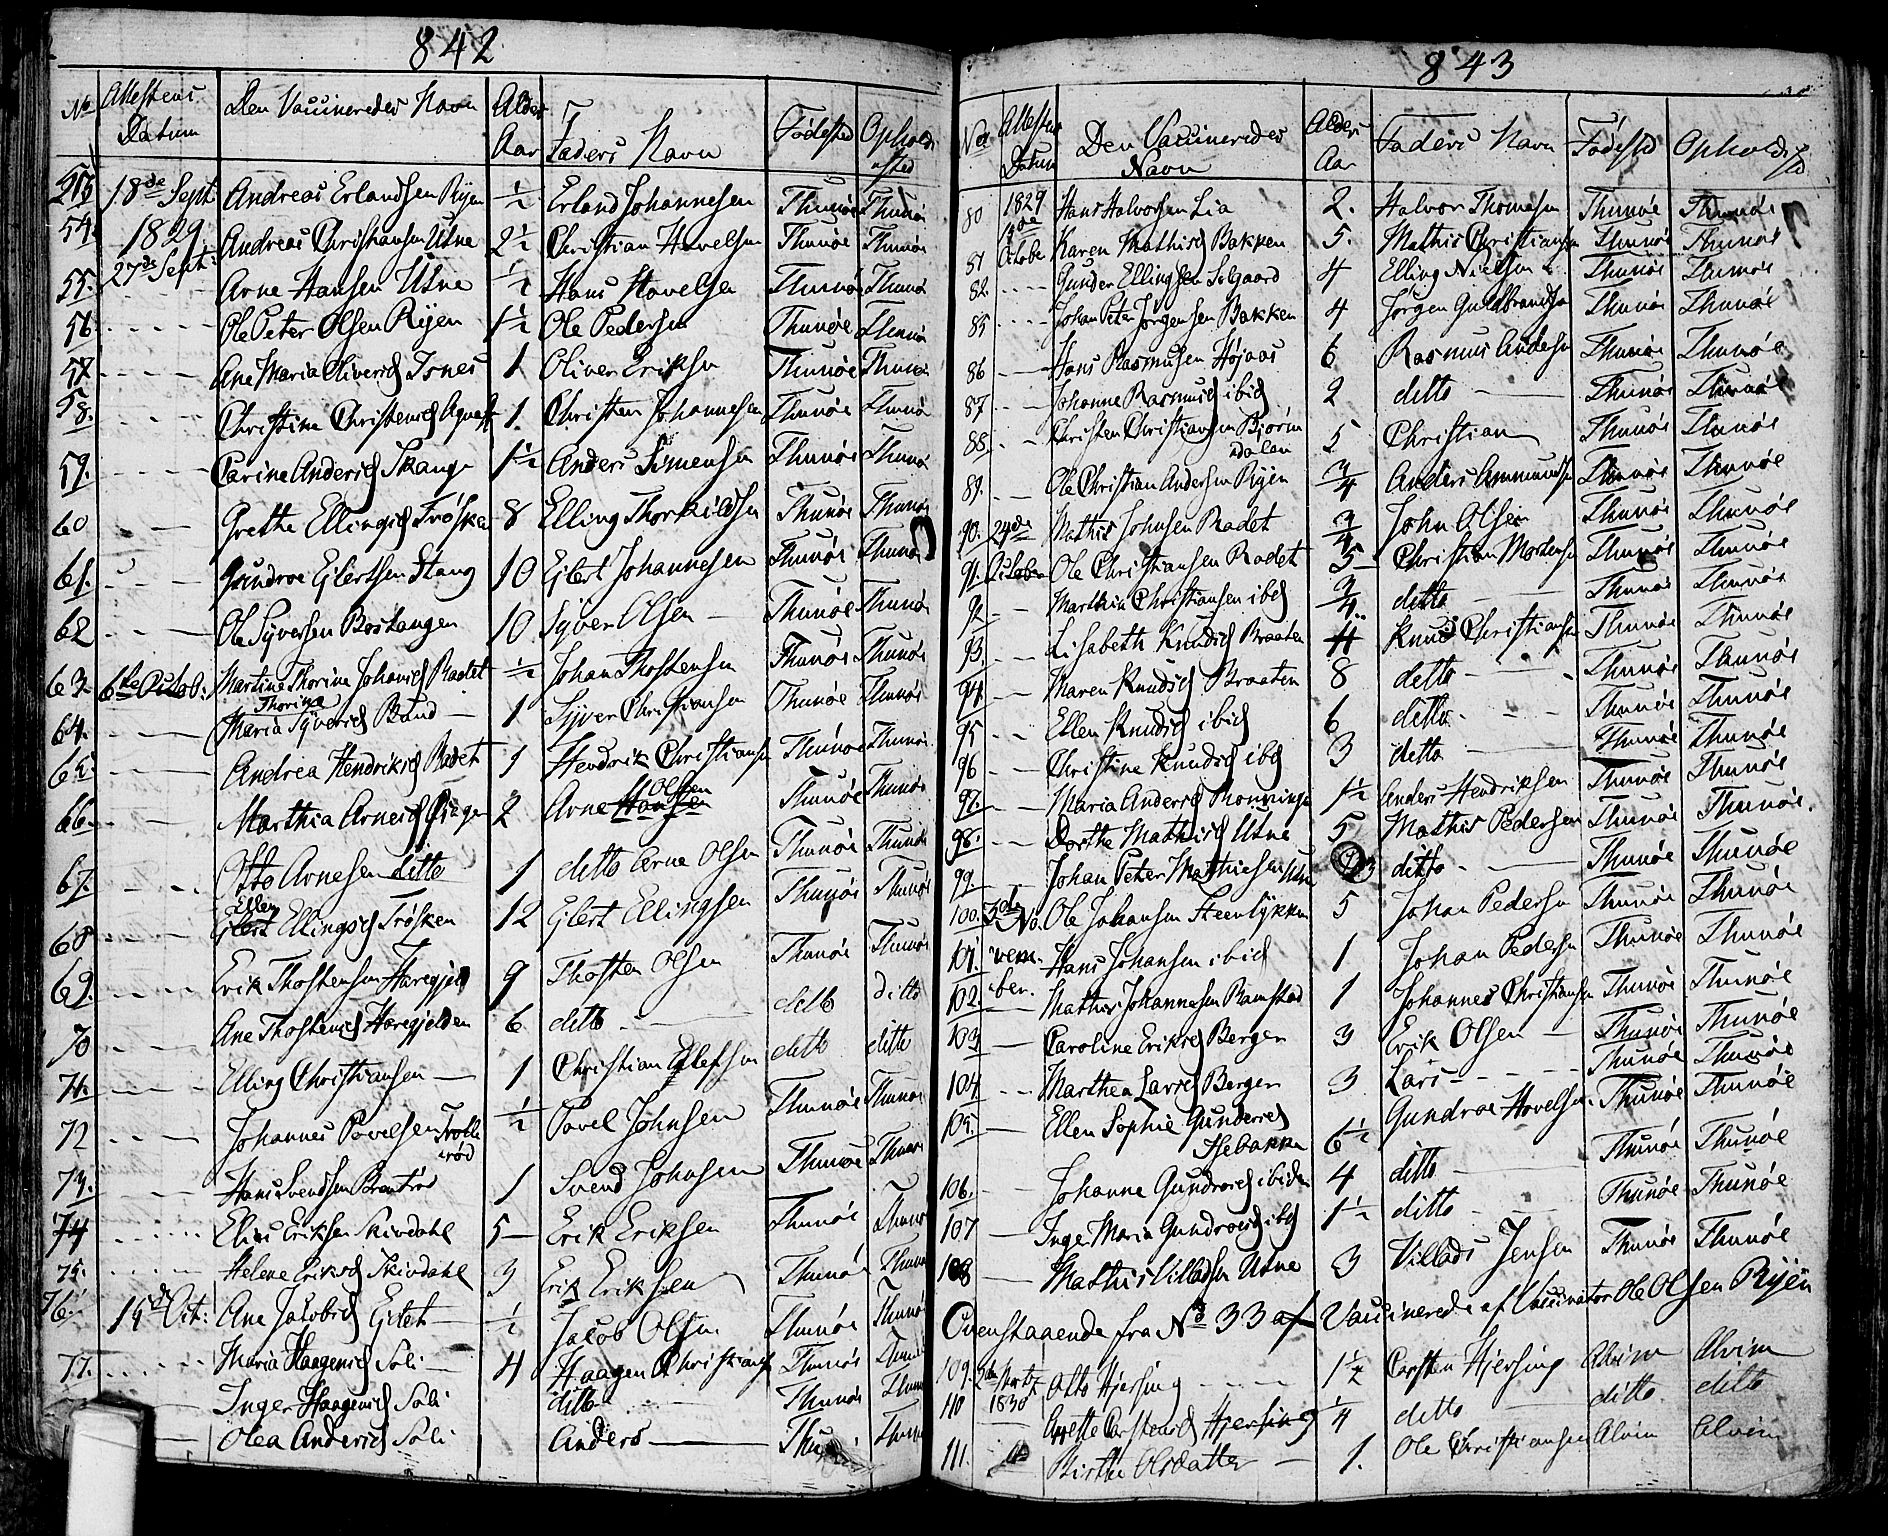 842
No Attestens Datum Den Vaccineredes Navn Alder Aar Faders Navn Fødested Opholdssted
53 18de Sept Andreas Erlandsen Ryen ½ Erland Johannesen Thunøe Thunøe
54. 1829 Andreas Christiansen Utne 2½ Christian Hovelsen Thunøe Thunøe
55. 27de Sept: Arne Hansen Utne ½ Hans Hovelsen Thunøe Thunøe
56 Ole Peter Olsen Ryen 1½ Ole Pedersen Thunøe Thunøe
57 Ane Maria Oliversd Isnes 1 Oliver Eriksen Thunøe Thunøe
58. Christine Christensd 1. Christen Johannesen Thunøe Thunøe
59. Carine Andersd Skange 1½ Anders Simensen Thunøe Thunøe
60 Grethe Ellingsd Trøsken 8 Elling Thorkildsen Thunøe Thunøe
61. Gundroe Ejlertsen Stang 10 Ejlert Johannesen Thunøe Thunøe
62 Ole Syversen Bostangen 10 Syver Olsen Thunøe Thunøe
63 6te Octob: Martine Thorine Johansd Raadet ½ Johan Thostensen Thunøe Thunøe
64. Maria Thorine Syversd Baud 1 Syver Christiansen Thunøe Thunøe
65. Andrea Hendriksd Radet 1 Hendrik Christiansen Thunøe Thunøe
66. Marthia Arnesd 2 Arne Hansen Olsen Thunøe Thunøe
67. Otto Arnesen ditto 1 ditto Arne Olsen Thunøe Thunøe
68 Ejlert Ellen Ellingsd Trøsken 12 Ejlert Ellingsen Thunøe Thunøe
69. Erik Thostensen Haregjeld 9 Thosten Olsen Thunøe Thunøe
70 Ane Thostensd Haregjelden 6 ditto ditto ditto
71. Elling Christiansen 1 Christian Ellefsen ditto ditto
72 Johannes Povelsen Trollerød ½ Povel Johnsen Thunøe Thunøe
73. Hans Svendsen 1 Svend Johnsen Thunøe Thunøe
74 Elias Eriksen Skivdahl 5 Erik Eriksen Thunøe Thunøe
75. Helene Eriksd Skivdahl 3 Erik Eriksen Thunøe Thunøe
76 15de Oct: Ane Jacobsd Ejdet ½ Jacob Olsen Thunøe Thunøe
77. Maria Haagensd Soli 4 Haagen Christians Thunøe Thunøe
Inger Haagensd Soli ditto Thunøe Thunøe
Olea Andersd Soli Anders
843
No Attestens Datum Den Vaccineredes Navn Alder Aar Faders Navn Fødested Opholdssted
80 1829 Hans Halvorsen Lia 2. Halvor Thomesen Thunøe Thunøe
81 October Karen Mathisd Bakken 5. Mathis Christiansen Thunøe Thunøe
82. Gunder Ellingsen Solgaard 4 Elling Nielsen Thunøe Thunøe
85 Johan Peter Jørgensen Bakken 4 Jørgen Guldbrandsen Thunøe Thunøe
86 Hans Rasmusen Højaas 6 Rasmus Andersen Thunøe Thunøe
87 Johanne Rasmusd ibid 2 ditto Thunøe Thunøe
88. Christen Christiansen Bjørnedalen 5 Christian Thunøe Thunøe
89. Ole Christian Andersen Ryen ¾ Anders Ammundsen Thunøe Thunøe
90. 24de Mathis Johnsen Radet ¾ John Olsen Thunøe Thunøe
91. October Ole Christiansen Radet 5 Christian Mortensen Thunøe Thunøe
92 Marthia Christiansen ibd ¾ ditto Thunøe Thunøe
93 Lisabeth Knudsd Braaten 11 Knud Christiansen Thunøe Thunøe
94 Maren Knudsd Braaten 8 ditto Thunøe Thunøe
95 Ellen Knudsd ibid 6 ditto Thunøe Thunøe
96 Christine Knudsd ibd 3 ditto Thunøe Thunøe
97. Maria Andersd Rønningen 1½ Anders Hendriksen Thunøe Thunøe
98. Dorthe Mathisd Utne 5 Mathis Pedersen Thunøe Thunøe
99 Johan Peter Matthiesen Utne 3 ditto Thunøe Thunøe
100. 3de No. Ole Johansen Steenlykken 5 Johan Pedersen Thunøe Thunøe
101. vem- Hans Johansen ibid 1 Johan Pedersen Thunøe Thunøe
102. ber. Mathis Johannesen Ramstad 1 Johannes Christiansen Thunøe Thunøe
103 Caroline Eriksd Bergen 3 Erik Olsen Thunøe Thunøe
104. Marthea Larsd Bergen 3 Lars Thunøe Thunøe
105. Ellen Sophie Gundersd Hsebakken 6½ Gundroe Hovelsen Thunøe Thunøe
106. Johanne Gundroesd ibiden 4 ditto Thunøe Thunøe
107 Inger Maria Gundroesd ibd 1½ ditto Thunøe Thunøe
108 Mathis Villadsen Utne 3 Villads Jensen Thunøe Thunøe
Ovenstaaende fra No 33 af Vaccinerede af Vaccinator Ole Olsen Ryen
109. 2den Marts Otto Hjersing 1½ Carsten Hjersing Alvim Alvim
110 1830 Grethe Carstensd Hjersing 4 ditto ditto ditto
111. Birthe Olsdatter 1. Ole Christiansen Alvim Alvim